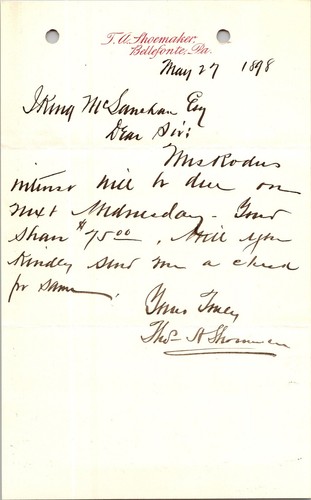 T. A. Shoemaker,
Bellefonte, Pa.
May 27 1898
J King McLanahan Esq
Dear Sir:
Mrs Rodes
interest will be due on
next Wednesday - Your
share $75.00, Will you
kindly send me a check
for same,
Yours Truly
Thos A Shoemaker